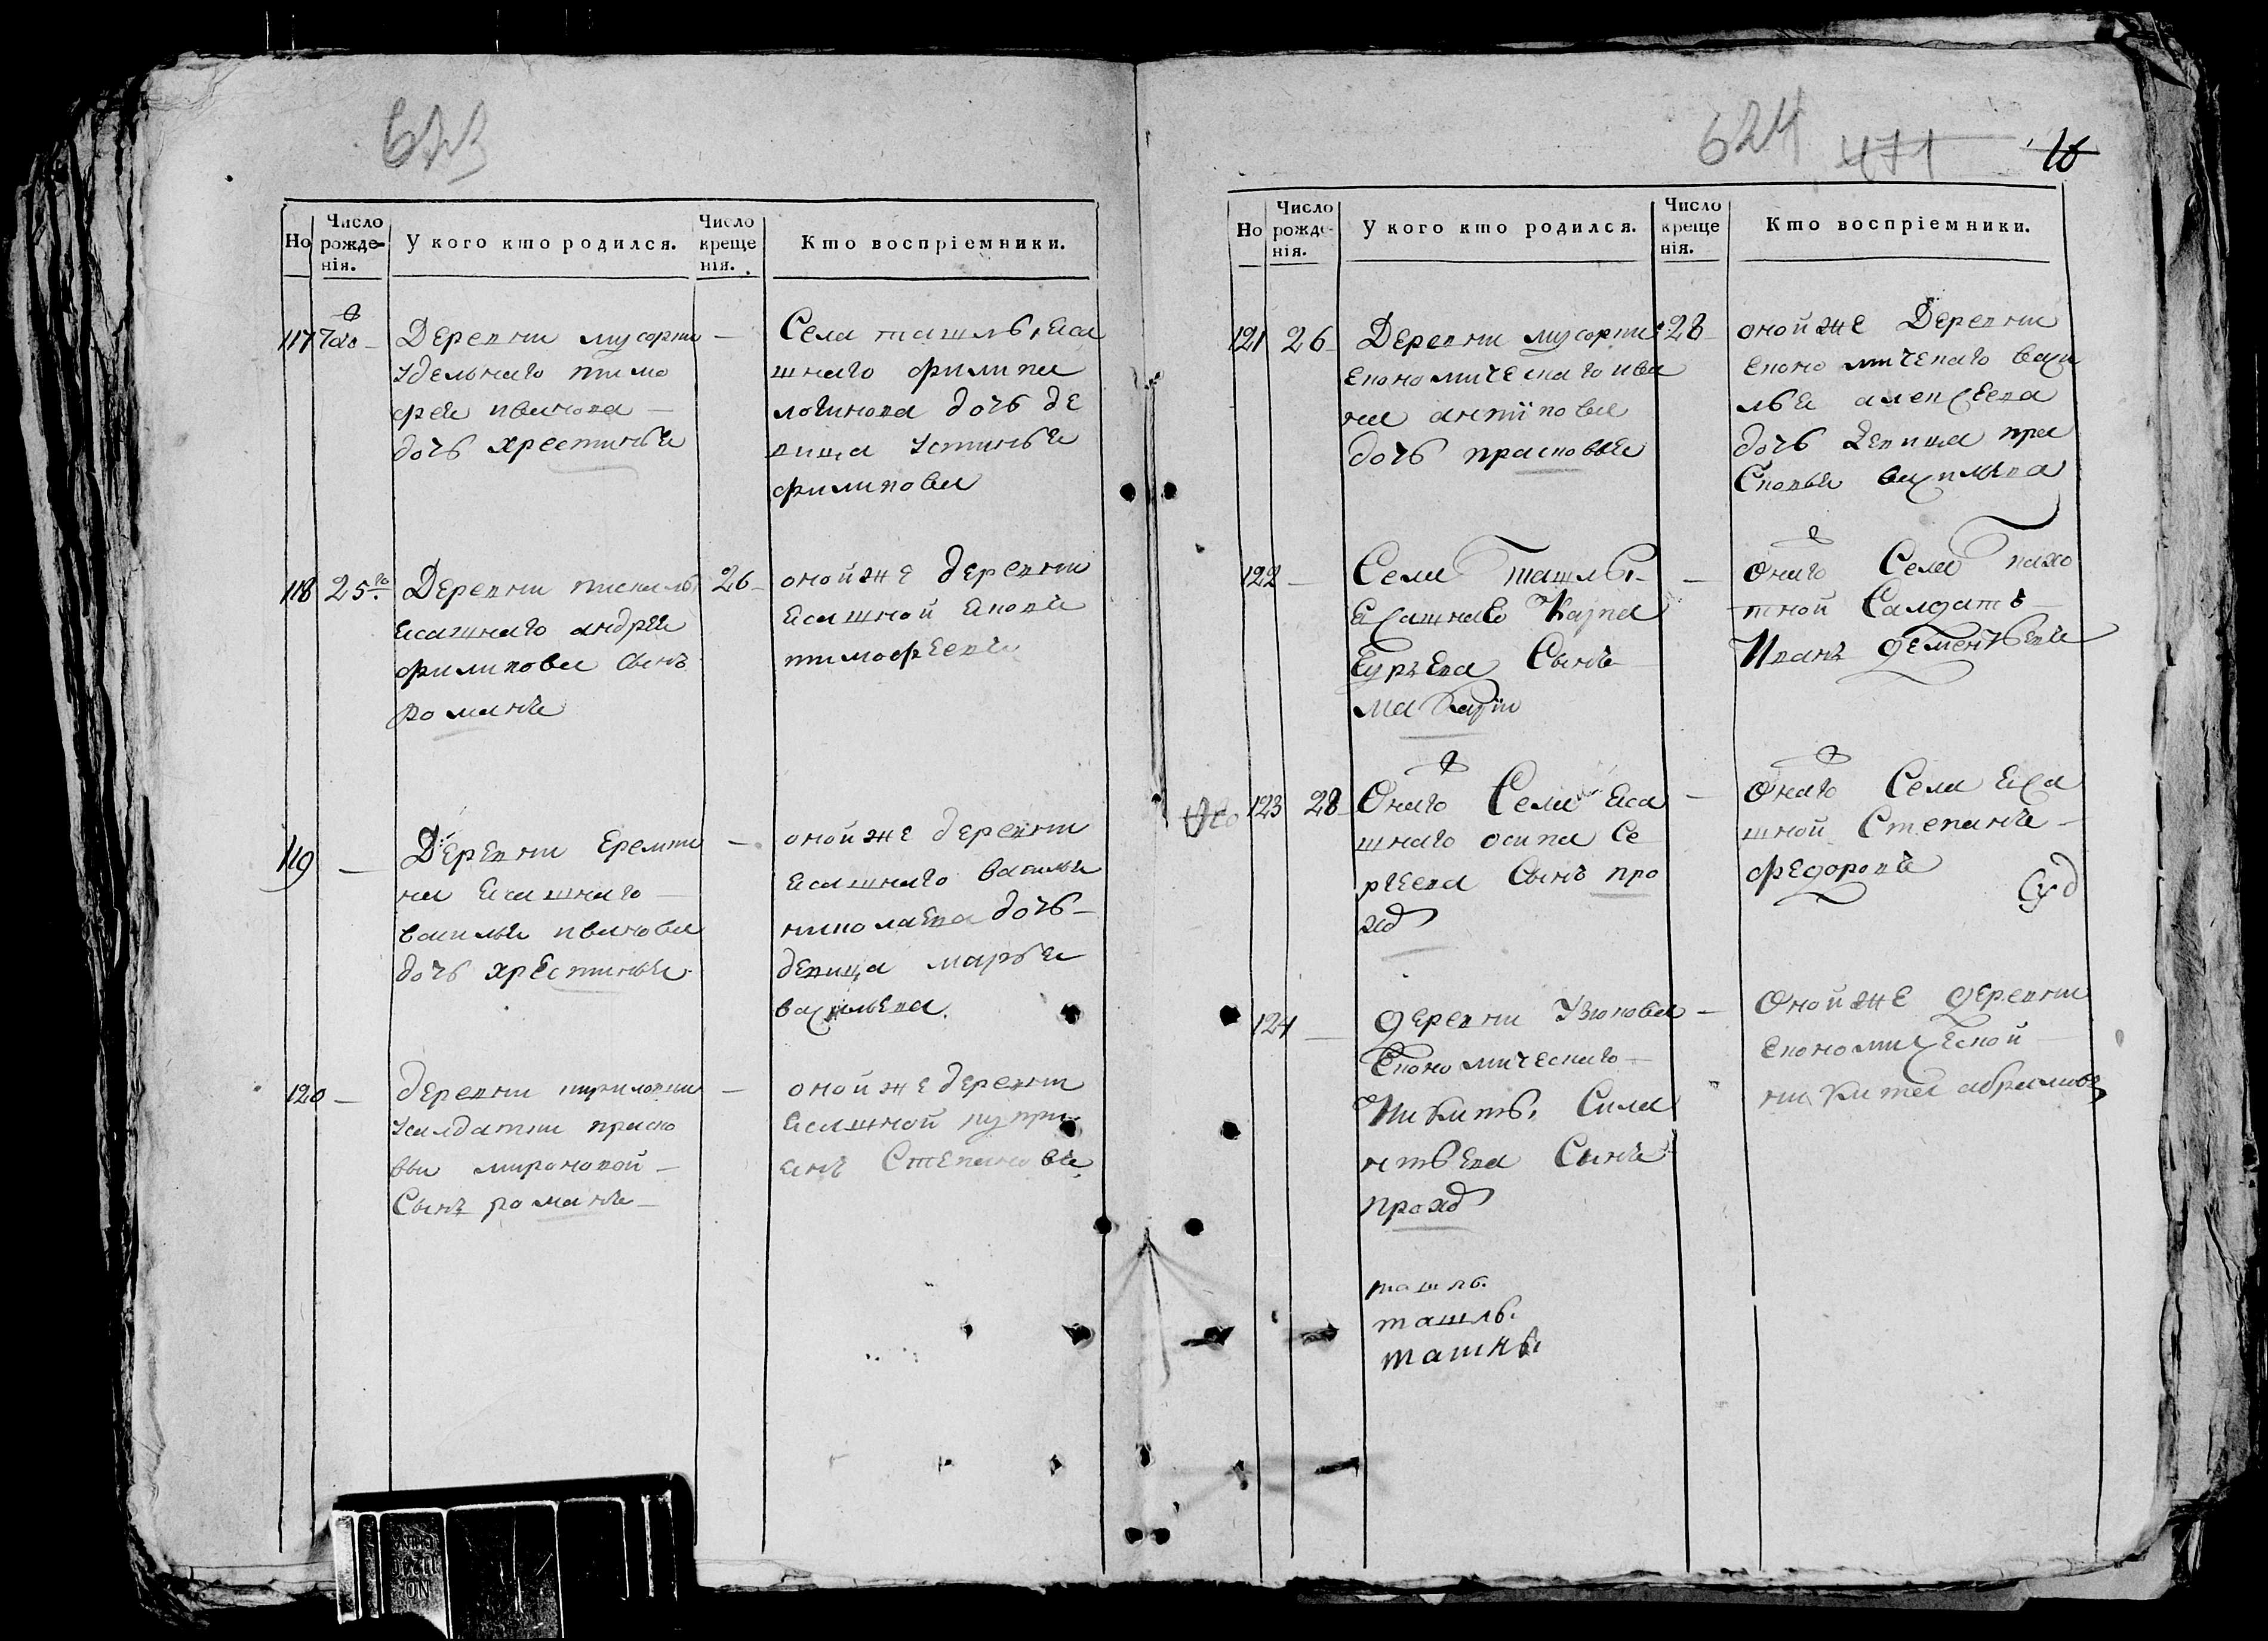 623
Но
Число рожде-нія.
У кого кто родился.
Число креще нія.
Кто воспріемники.
117
Деревни мусорки
удельнаго тимо
фея иванова
дочь христинья
Села ташлы, яса
шнаго филипа
логинова дочь де
вица устинья
филипова
118 25го
Деревни пискалы
ясашнаго андрея
филипова сынъ
романъ
26
оной же деревни
ясашной
тимофеевъ
119
Деревни Еремки
на ясашнаго
василья иванова
дочь христинья
оной же деревни
ясашнаго василья
николаева дочь
девица марья
васильева
120
деревни кириловки
салдатки праско
вьи мироновой
Сынъ романъ
оной же деревни
ясашной купри
янъ Степановъ
624
471
16
Но
Число рожде-нія.
У кого кто родился.
Число креще нія.
Кто воспріемники.
121 26
Деревни мусорки
економическаго ива
на антипова
дочь прасковья
28
оной же Деревни
економическаго васи
лья алексеева
дочь девица пра
сковья васильева
122
Села ташлы
ясашнаго Карпа
Гурьева Сынъ
Макарiи
онаго Села пахо
тной Салдатъ
Иванъ дементьевъ
123 28
Онаго Села яса
шнаго осипа Се
ргеева Сынъ про
хор
Онаго Села яса
шной Степанъ
федоровъ
124
деревни Узюкова
Економическаго
Никиты Сила
нтьева Сынъ
прохор
Оной же деревни
економической
никита абрамовъ
ташлы
ташлы
ташлы